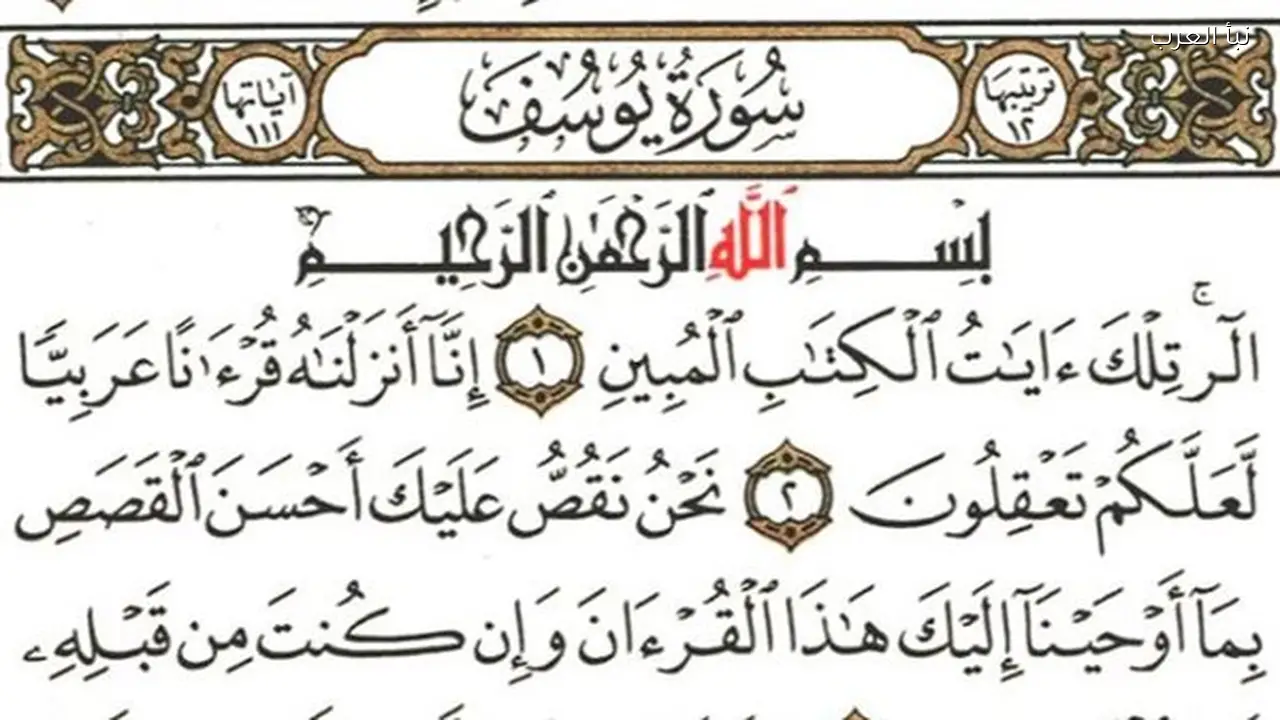 نبأ العرب
ترتيبها
١٢
سُورَةُ يُوسُفَ
آياتها
١١١
بِسْمِ ٱللَّهِ ٱلرَّحْمَٰنِ ٱلرَّحِيمِ
الٓرۚ تِلْكَ ءَايَٰتُ ٱلْكِتَٰبِ ٱلْمُبِينِ ١ إِنَّآ أَنزَلْنَٰهُ قُرْءَٰنًا عَرَبِيًّا
لَّعَلَّكُمْ تَعْقِلُونَ ٢ نَحْنُ نَقُصُّ عَلَيْكَ أَحْسَنَ ٱلْقَصَصِ
بِمَآ أَوْحَيْنَآ إِلَيْكَ هَٰذَا ٱلْقُرْءَانَ وَإِن كُنتَ مِن قَبْلِهِۦ